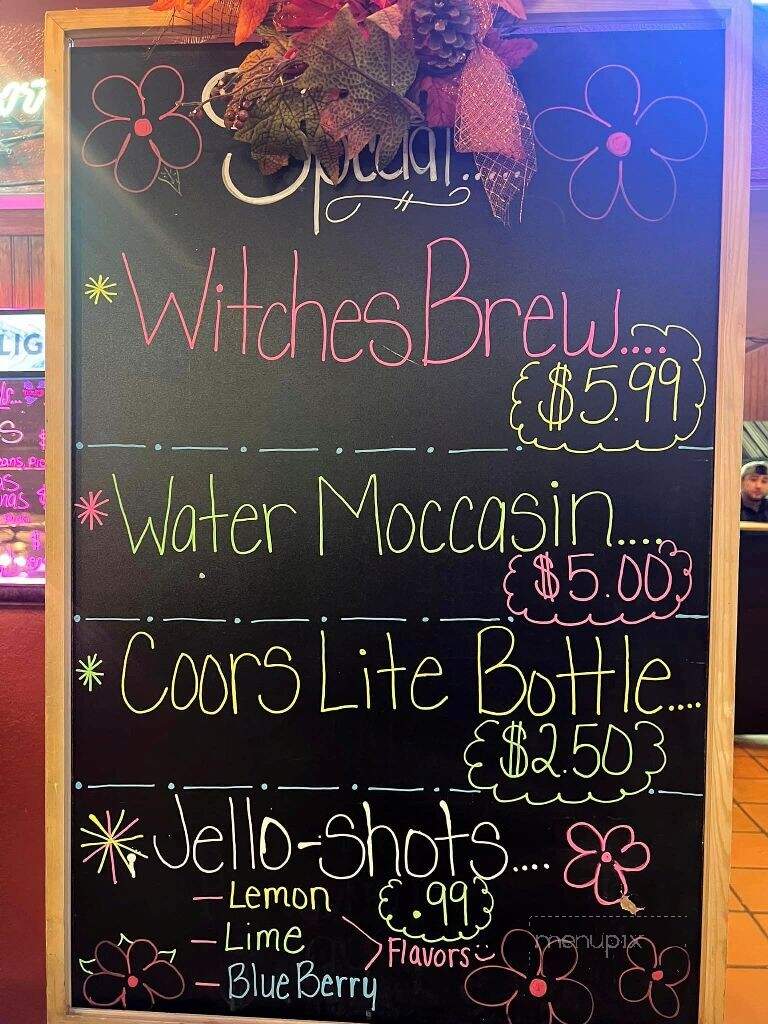 Special.....
Witches Brew....
$5.99
Water Moccasin....
$5.00
Coors Lite Bottle....
$2.50
Jello-shots....
- Lemon
.99
- Lime
Flavors
- Blue Berry
menupix
LIG